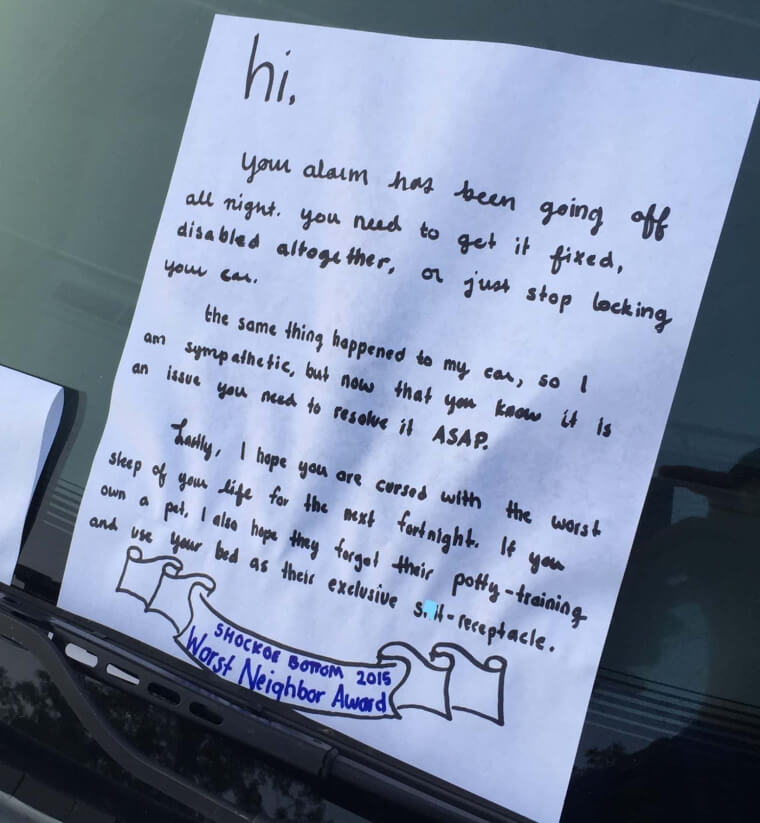 hi,
Your alarm has been going off
all night. you need to get it fixed,
disabled altogether, or just stop locking
your car.
the same thing happened to my car, so I
am sympathetic, but now that you know it is
an issue you need to resolve it ASAP.
Lastly, I hope you are cursed with the worst
sleep of your life for the next fortnight. If you
own a pet, I also hope they forget their potty-training
and use your bed as their exclusive s it-receptacle.
SHOCKOE BOTTOM 2015
Worst Neighbor Award